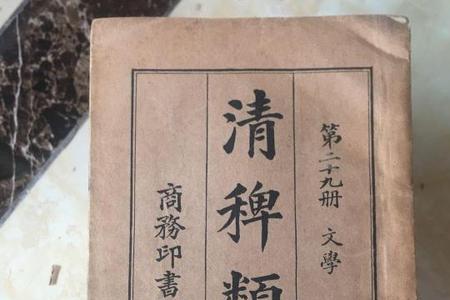 第二十九册 文學
清稗類
商務印書